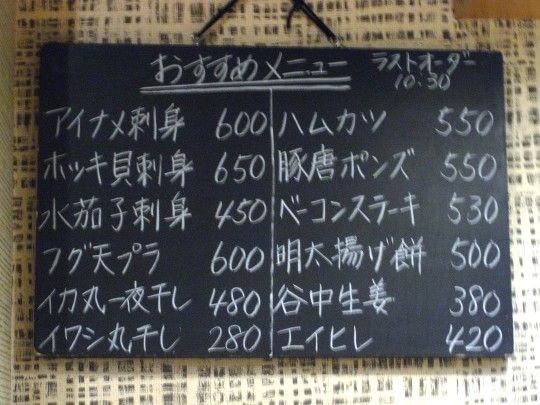 おすすめメニュー
ラストオーダー
10:30
アイナメ刺身 600
ホッキ貝刺身 650
水茄子刺身 450
フグ天プラ 600
イカ丸一夜干し 480
イワシ丸干し 280
ハムカツ 550
豚唐ポンズ 550
ベーコンステーキ 530
明太揚げ餅 500
谷中生姜 380
エイヒレ 420